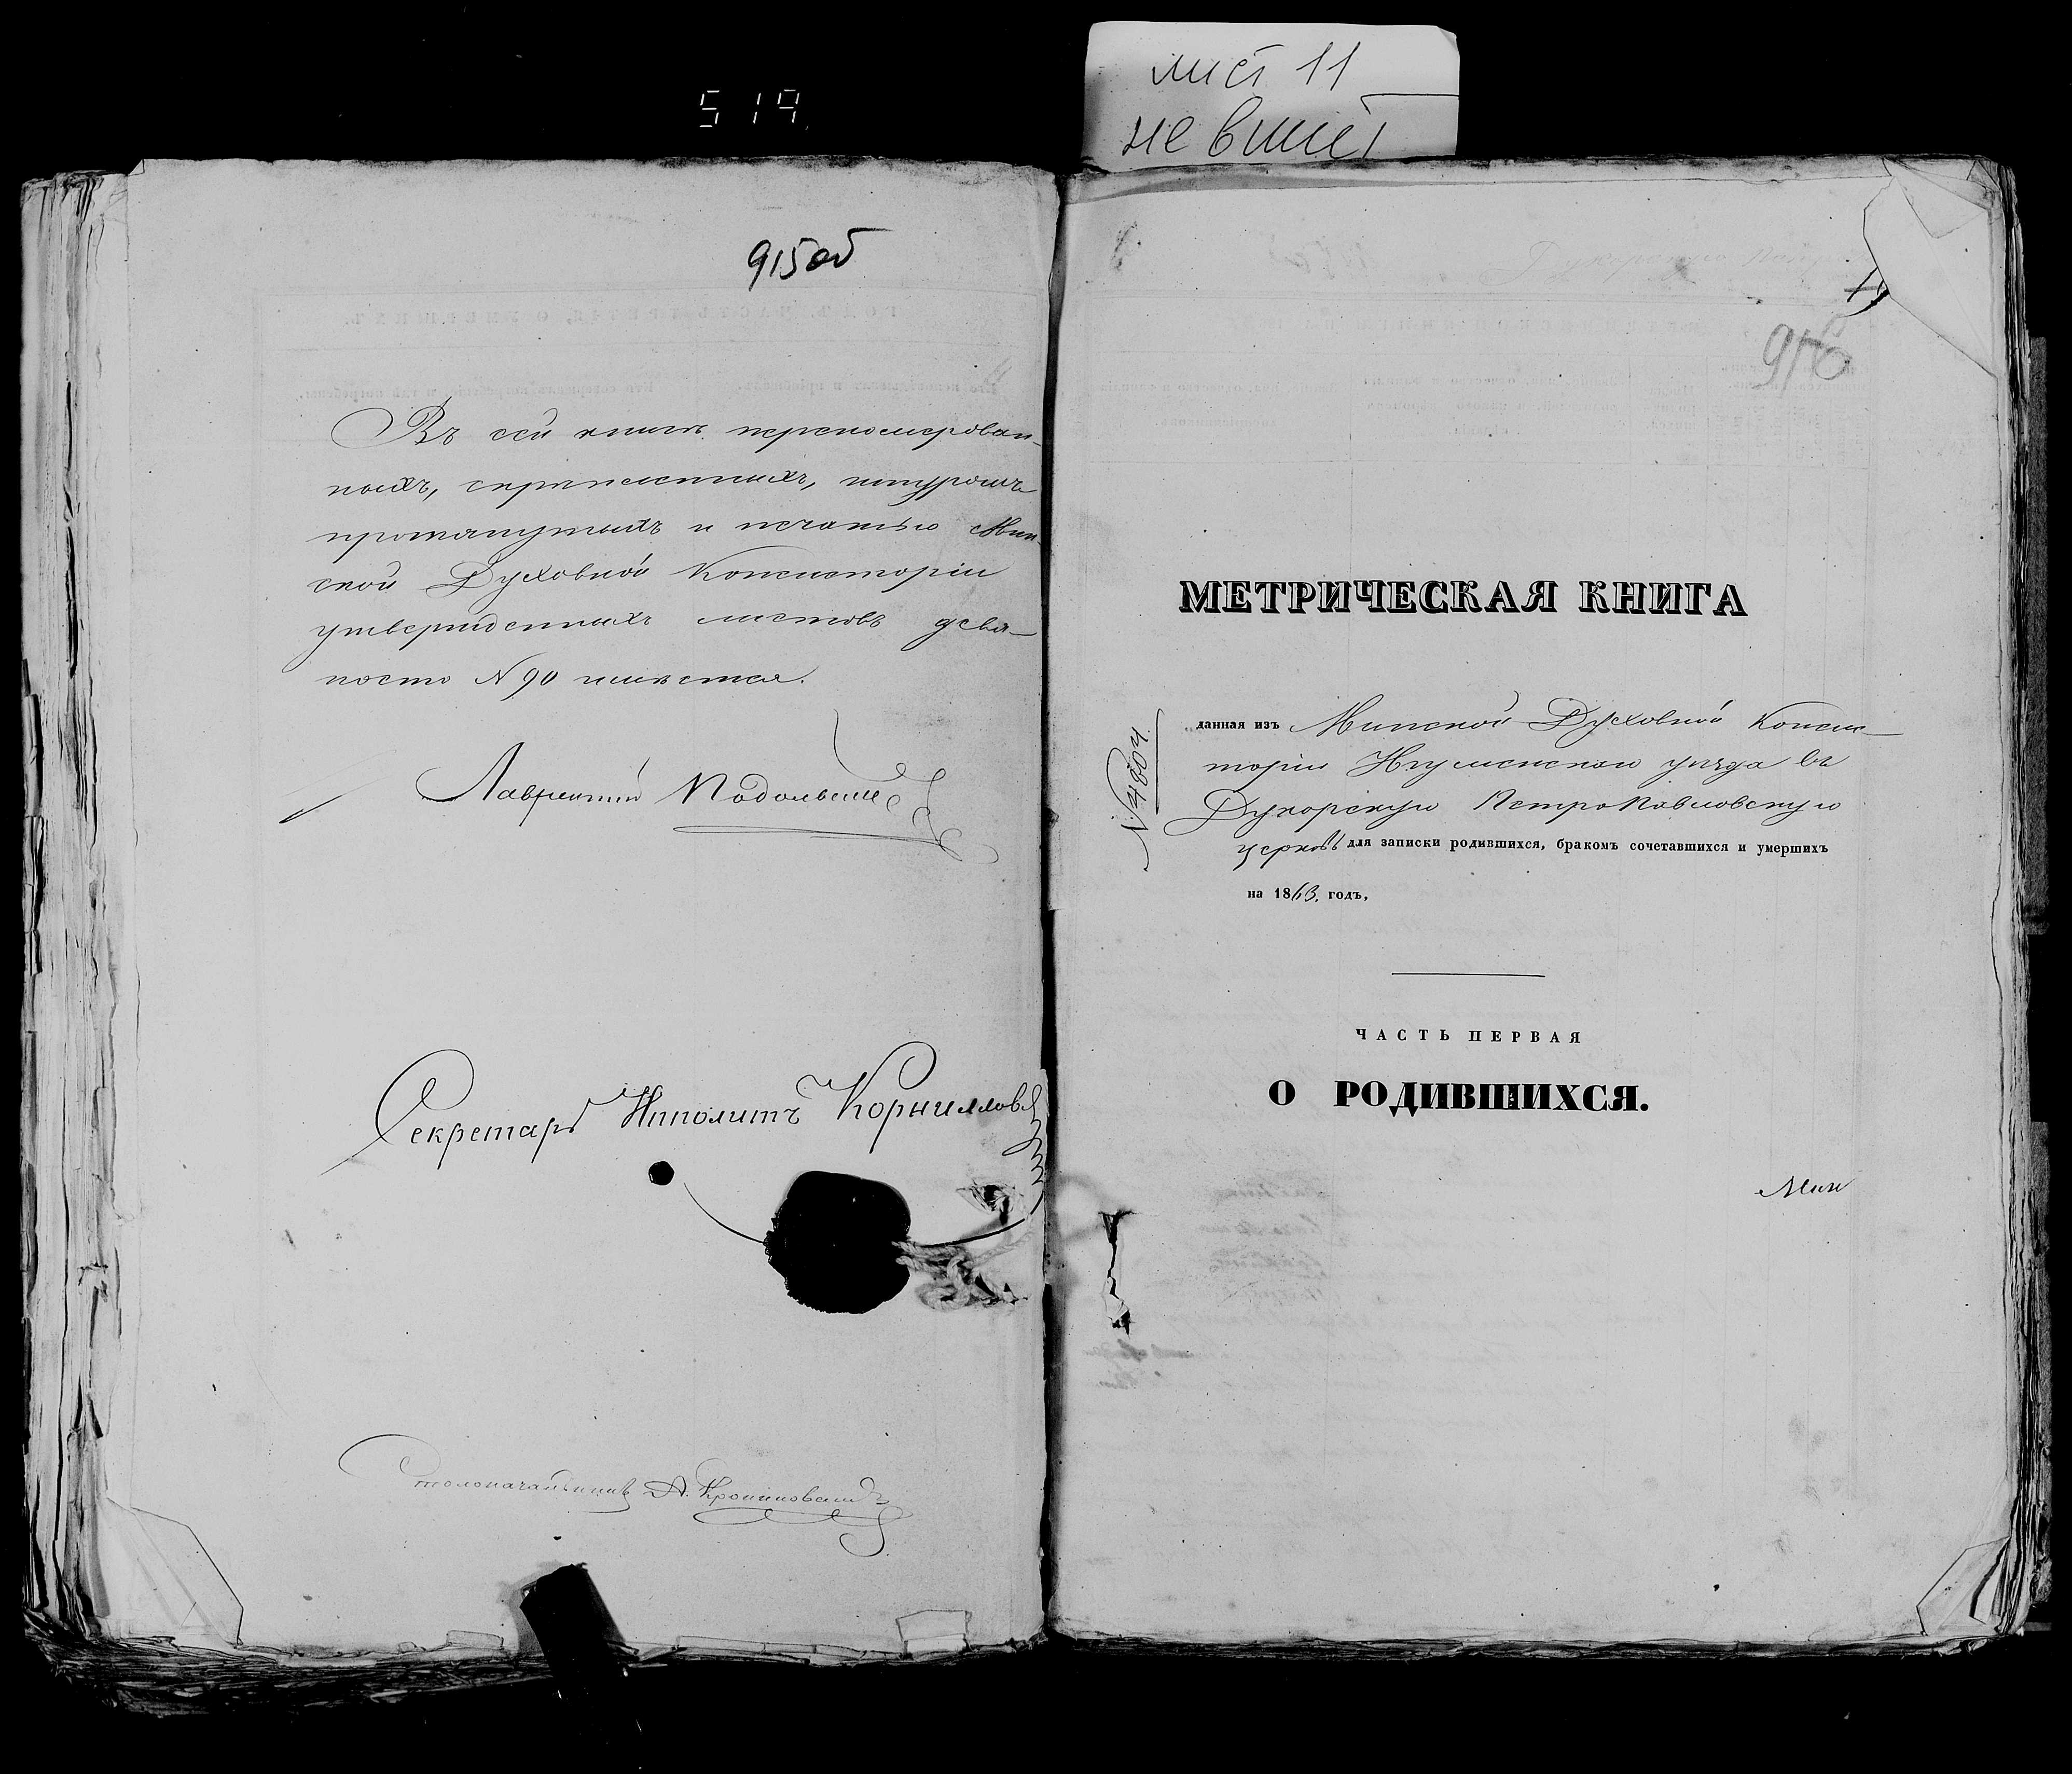 лист 11
не вшит
519
915 об
Въ сей книгѣ перенумерован-
ныхъ, скрѣпленныхъ, шнуромъ
протянутыхъ и печатью Мин-
ской Духовной Консисторіи
утвержденныхъ листовъ девя-
носто N 90 имѣется.
Лаврентій Подольскій
Секретарь Ипполитъ Корнилловъ
Столоначальникъ А.
916
МЕТРИЧЕСКАЯ КНИГА
N 4804
данная изъ Минской Духовной Консис-
торіи Игуменскаго уѣзда въ
Дукорскую Петропавловскую
церковь для записки родившихся, бракомъ сочетавшихся и умершихъ
на 1863. годъ,
ЧАСТЬ ПЕРВАЯ
О РОДИВШИХСЯ.
Мин